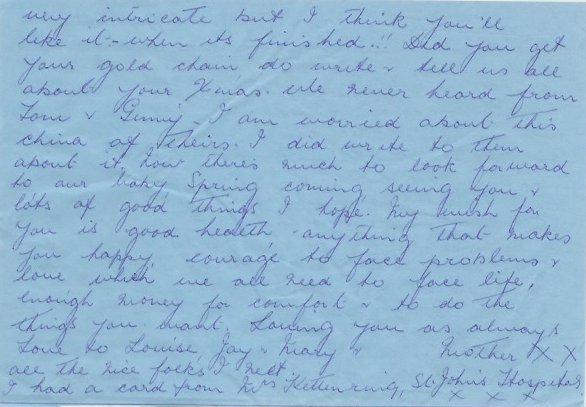 very intricate but I think you'll
like it:- when its finished.!! Did you get
your gold chain do write & tell us all
about your Xmas. We never heard from
Tom & Ginny. I am worried about this
china of theirs. I did write to them
about it, how there's much to look forward
to our baby Spring coming, seeing you &
lots of good things I hope. My wish for
you is good health - anything that makes
you happy, courage to face problems &
love which we all need to face life,
enough money for comfort & to do the
things you want. Loving you as always
Love to Louise, Jay & Mary & Mother X X
all the nice folks I met.
I had a card from Mrs Kettenring, St. John's Hospital
X X X